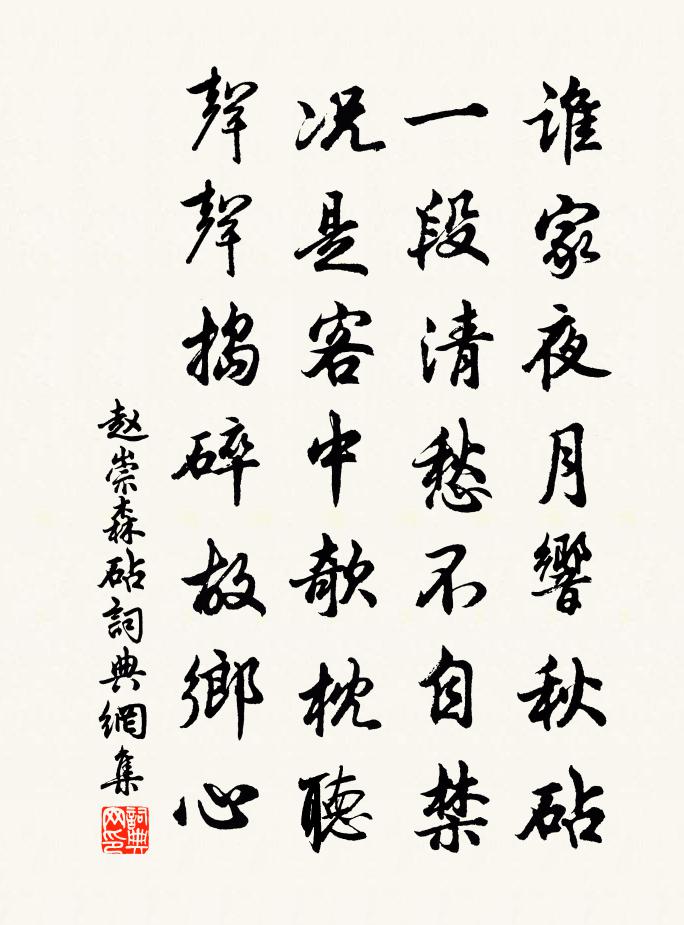 誰家夜月響秋砧
一段清愁不自禁
况是客中欹枕聽
聲聲搗碎故鄉心
赵崇森砧詞典網集
詞典网印